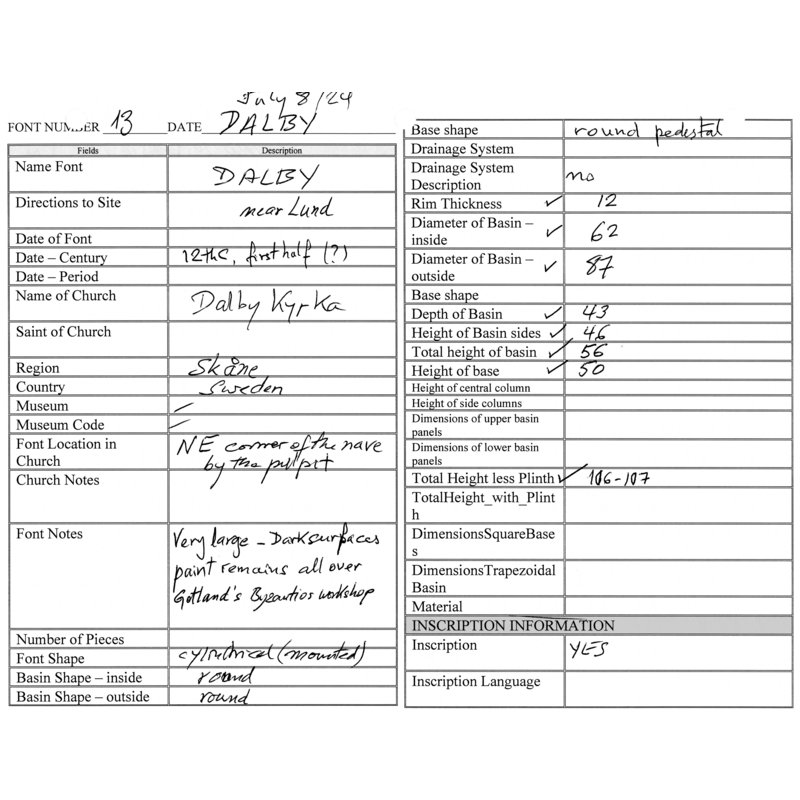 July 8/24
FONT NUMBER 13 DATE DALBY
Fields Description
Name Font DALBY
Directions to Site near Lund
Date of Font
Date – Century 12thc, first half (?)
Date – Period
Name of Church Dalby Kyrka
Saint of Church
Region Skåne
Country Sweden
Museum –
Museum Code –
Font Location in NE corner of the nave
Church by the pulpit
Church Notes
Font Notes Very large – Dark surfaces
paint remains all over
Gotland's Byzantios workshop
Number of Pieces
Font Shape cylindrical (mounted)
Basin Shape – inside round
Basin Shape – outside round
Base shape round pedestal
Drainage System
Drainage System
Description no
Rim Thickness ✓ 12
Diameter of Basin –
inside ✓ 62
Diameter of Basin –
outside ✓ 87
Base shape
Depth of Basin ✓ 43
Height of Basin sides ✓ 46
Total height of basin ✓ 56
Height of base ✓ 50
Height of central column
Height of side columns
Dimensions of upper basin
panels
Dimensions of lower basin
panels
Total Height less Plinth ✓ 106-107
TotalHeight_with_Plint
h
DimensionsSquareBase
s
DimensionsTrapezoidal
Basin
Material
INSCRIPTION INFORMATION
Inscription YES
Inscription Language